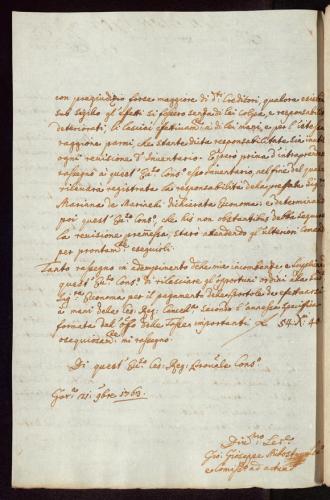 con pregiudizio forse maggiore di d.ti Creditori, qualora essendo
sub sigillo gl'effetti si fossero senza di lei colpa, e responsabilità
deteriorati, li lasciai effettivam.te in di lei mani, e per l'istessa
raggione parmi, che stante d.ta responsabilità sia inutile
ogni revisione d'Inventario. E però prima d'intraprenderla
rassegno a quest' Ecc.so Cons.o esso Inventario, nel fine del quale
rilevasi registrata la responsabilità della prefata Sig.ra
Marianna de Marinelli dichiarata Economa, e determinando
poi quest' Ecc.so Cons.o, che his non obstantibus debba seguire
la revisione premessa, starò attendendo gl'ulteriori comandi
per prontam.te eseguirli.
Tanto rassegno in adempimento della mia incombenza, e supplicando
quest' Ecc.so Cons.o di rilasciare gl'opportuni ordini alla sud.a
Sig.ra Economa per il pagamento delle sportole da effettuarsi
a mani della Ces: Reg: Cancell.a secondo l'annessa specifica
formata dal Off.o delle Tasse importanti 54 X: 4
ossequiosam.te mi rassegno.
Di quest' Ecc.so Ces: Reg: Prov.ale Cons.o
Gor.a 21: 9bre 1763.
Div.mo Ser.e
Gio: Giuseppe
e Comiss.o ad acta